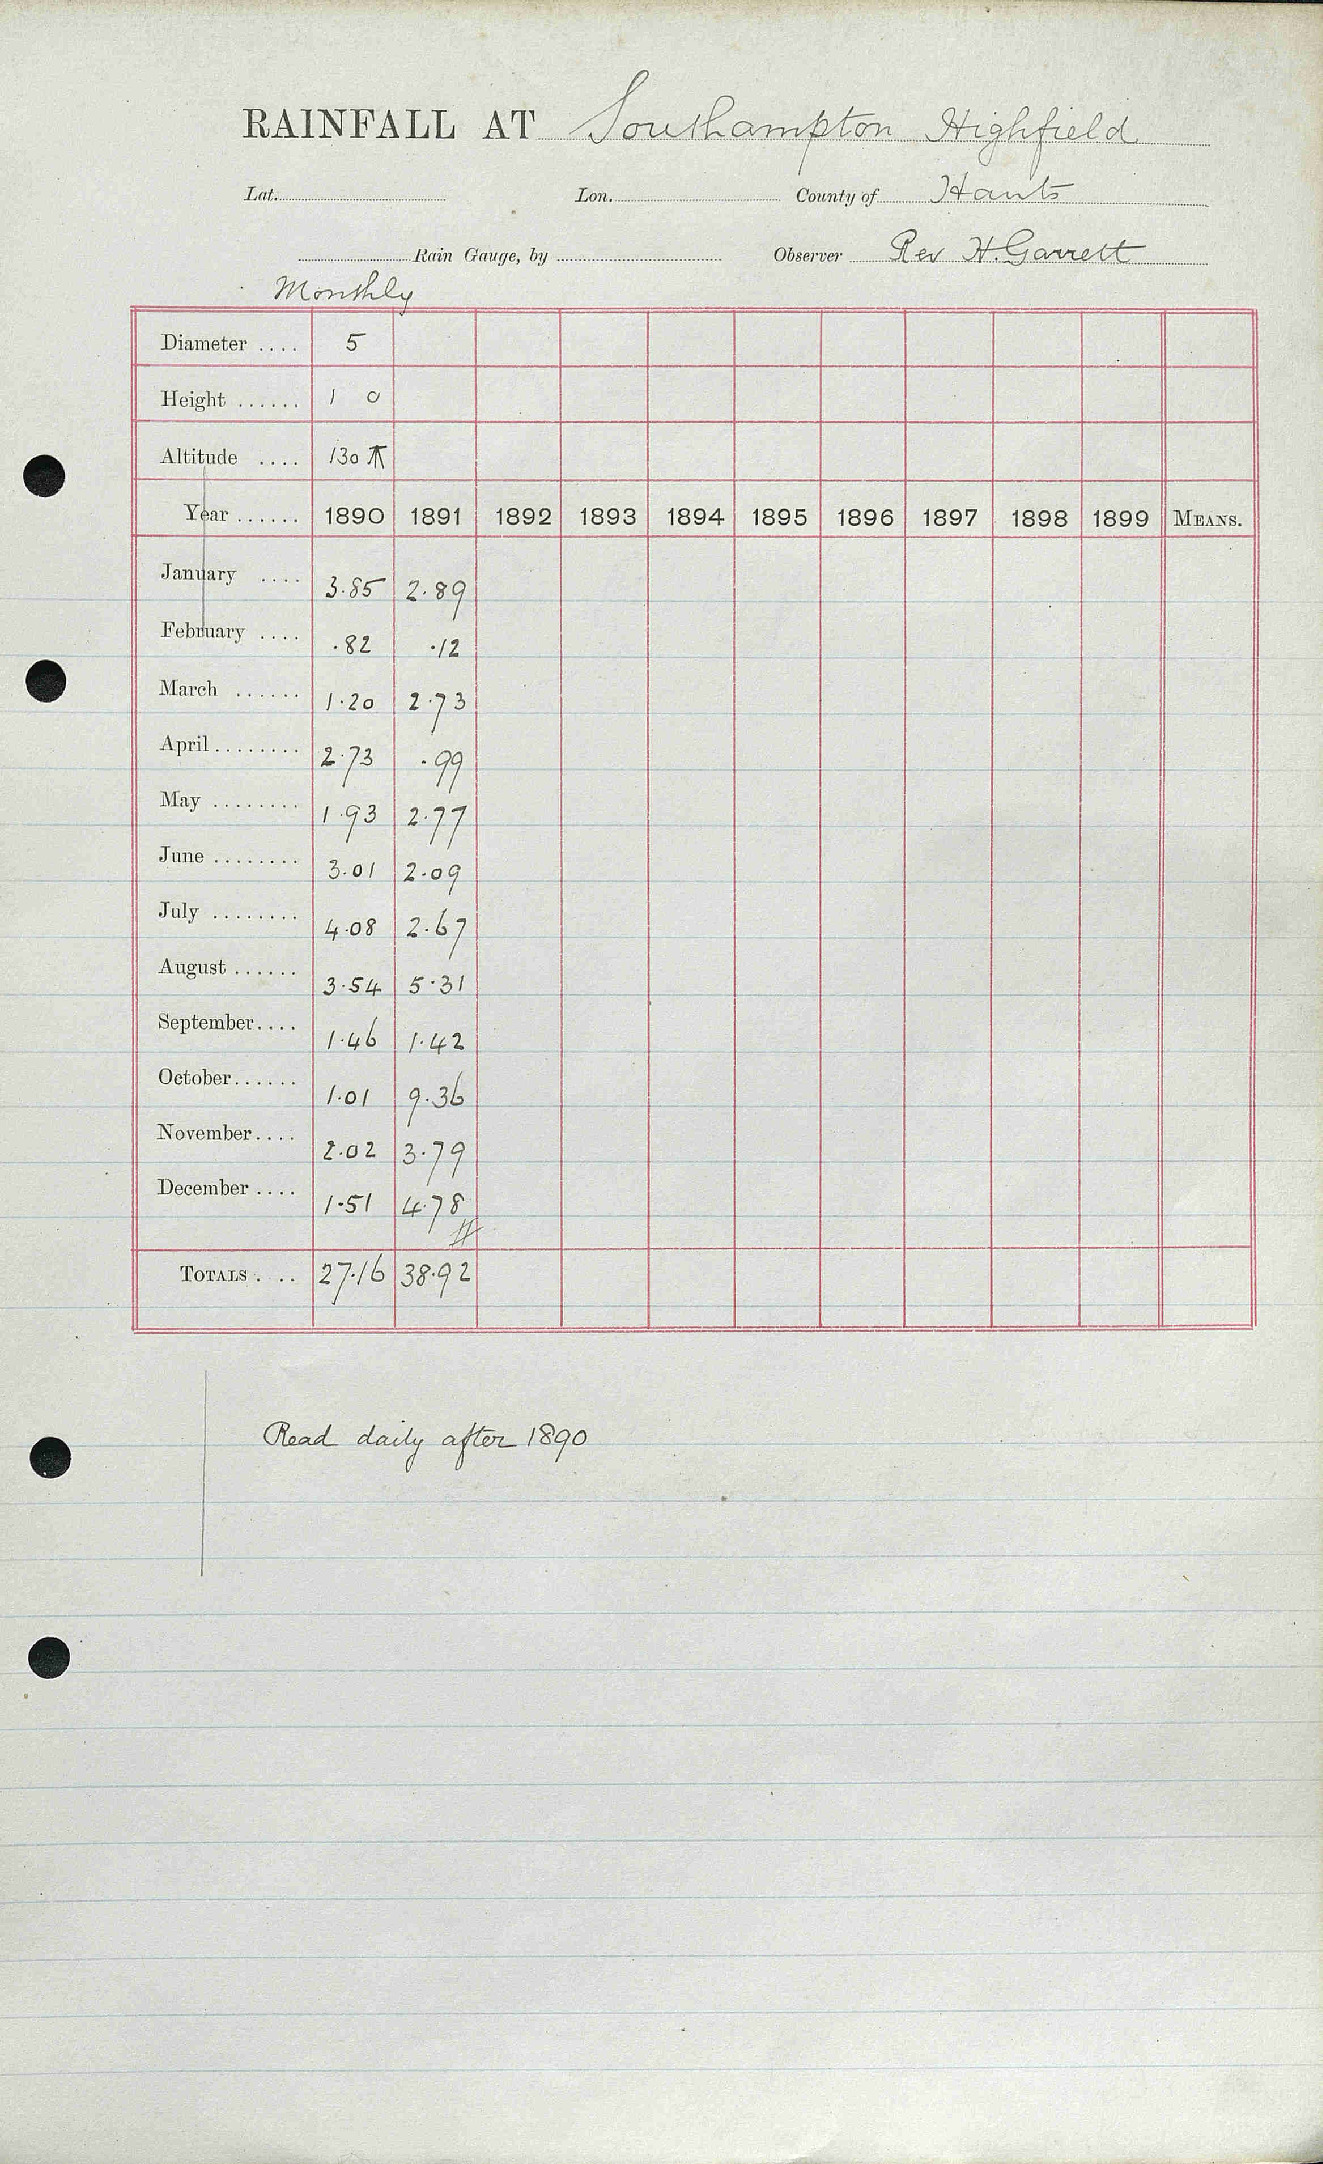 RAINFALL AT Southampton Highfield
Lat. Lon. County of Hants
Rain Gauge, by Observer Rev H. Garrett
Monthly
Diameter .... 5
Height ...... 1 0
Altitude .... 130
Year ...... 1890 1891 1892 1893 1894 1895 1896 1897 1898 1899 MEANS.
January .... 3.85 2.89
February .... .82 .12
March ...... 1.20 2.73
April ........ 2.73 .99
May ........ 1.93 2.77
June ........ 3.01 2.09
July ........ 4.08 2.67
August ...... 3.54 5.31
September.... 1.46 1.42
October...... 1.01 9.36
November.... 2.02 3.79
December .... 1.51 4.78
TOTALS . .. 27.16 38.92
Read daily after 1890